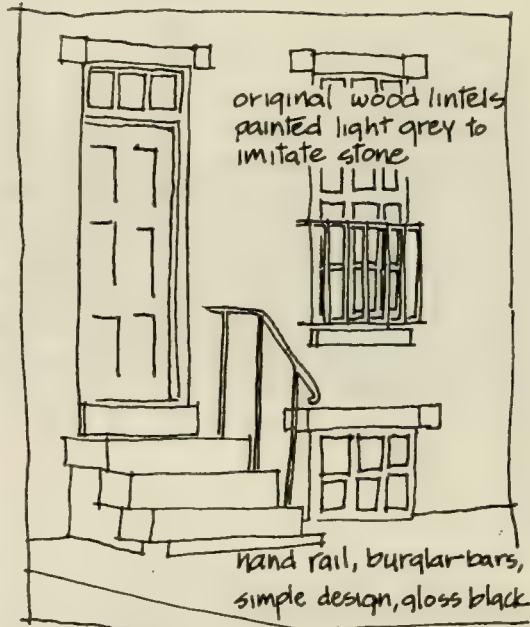 original wood lintels
painted light grey to
imitate stone
hand rail, burglar-bars,
simple design, gloss black